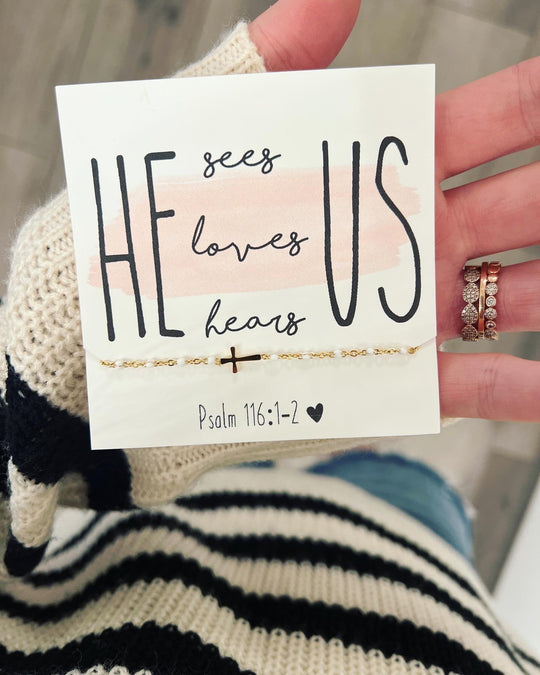 sees
HE loves US
hears
Psalm 116:1-2 ♥